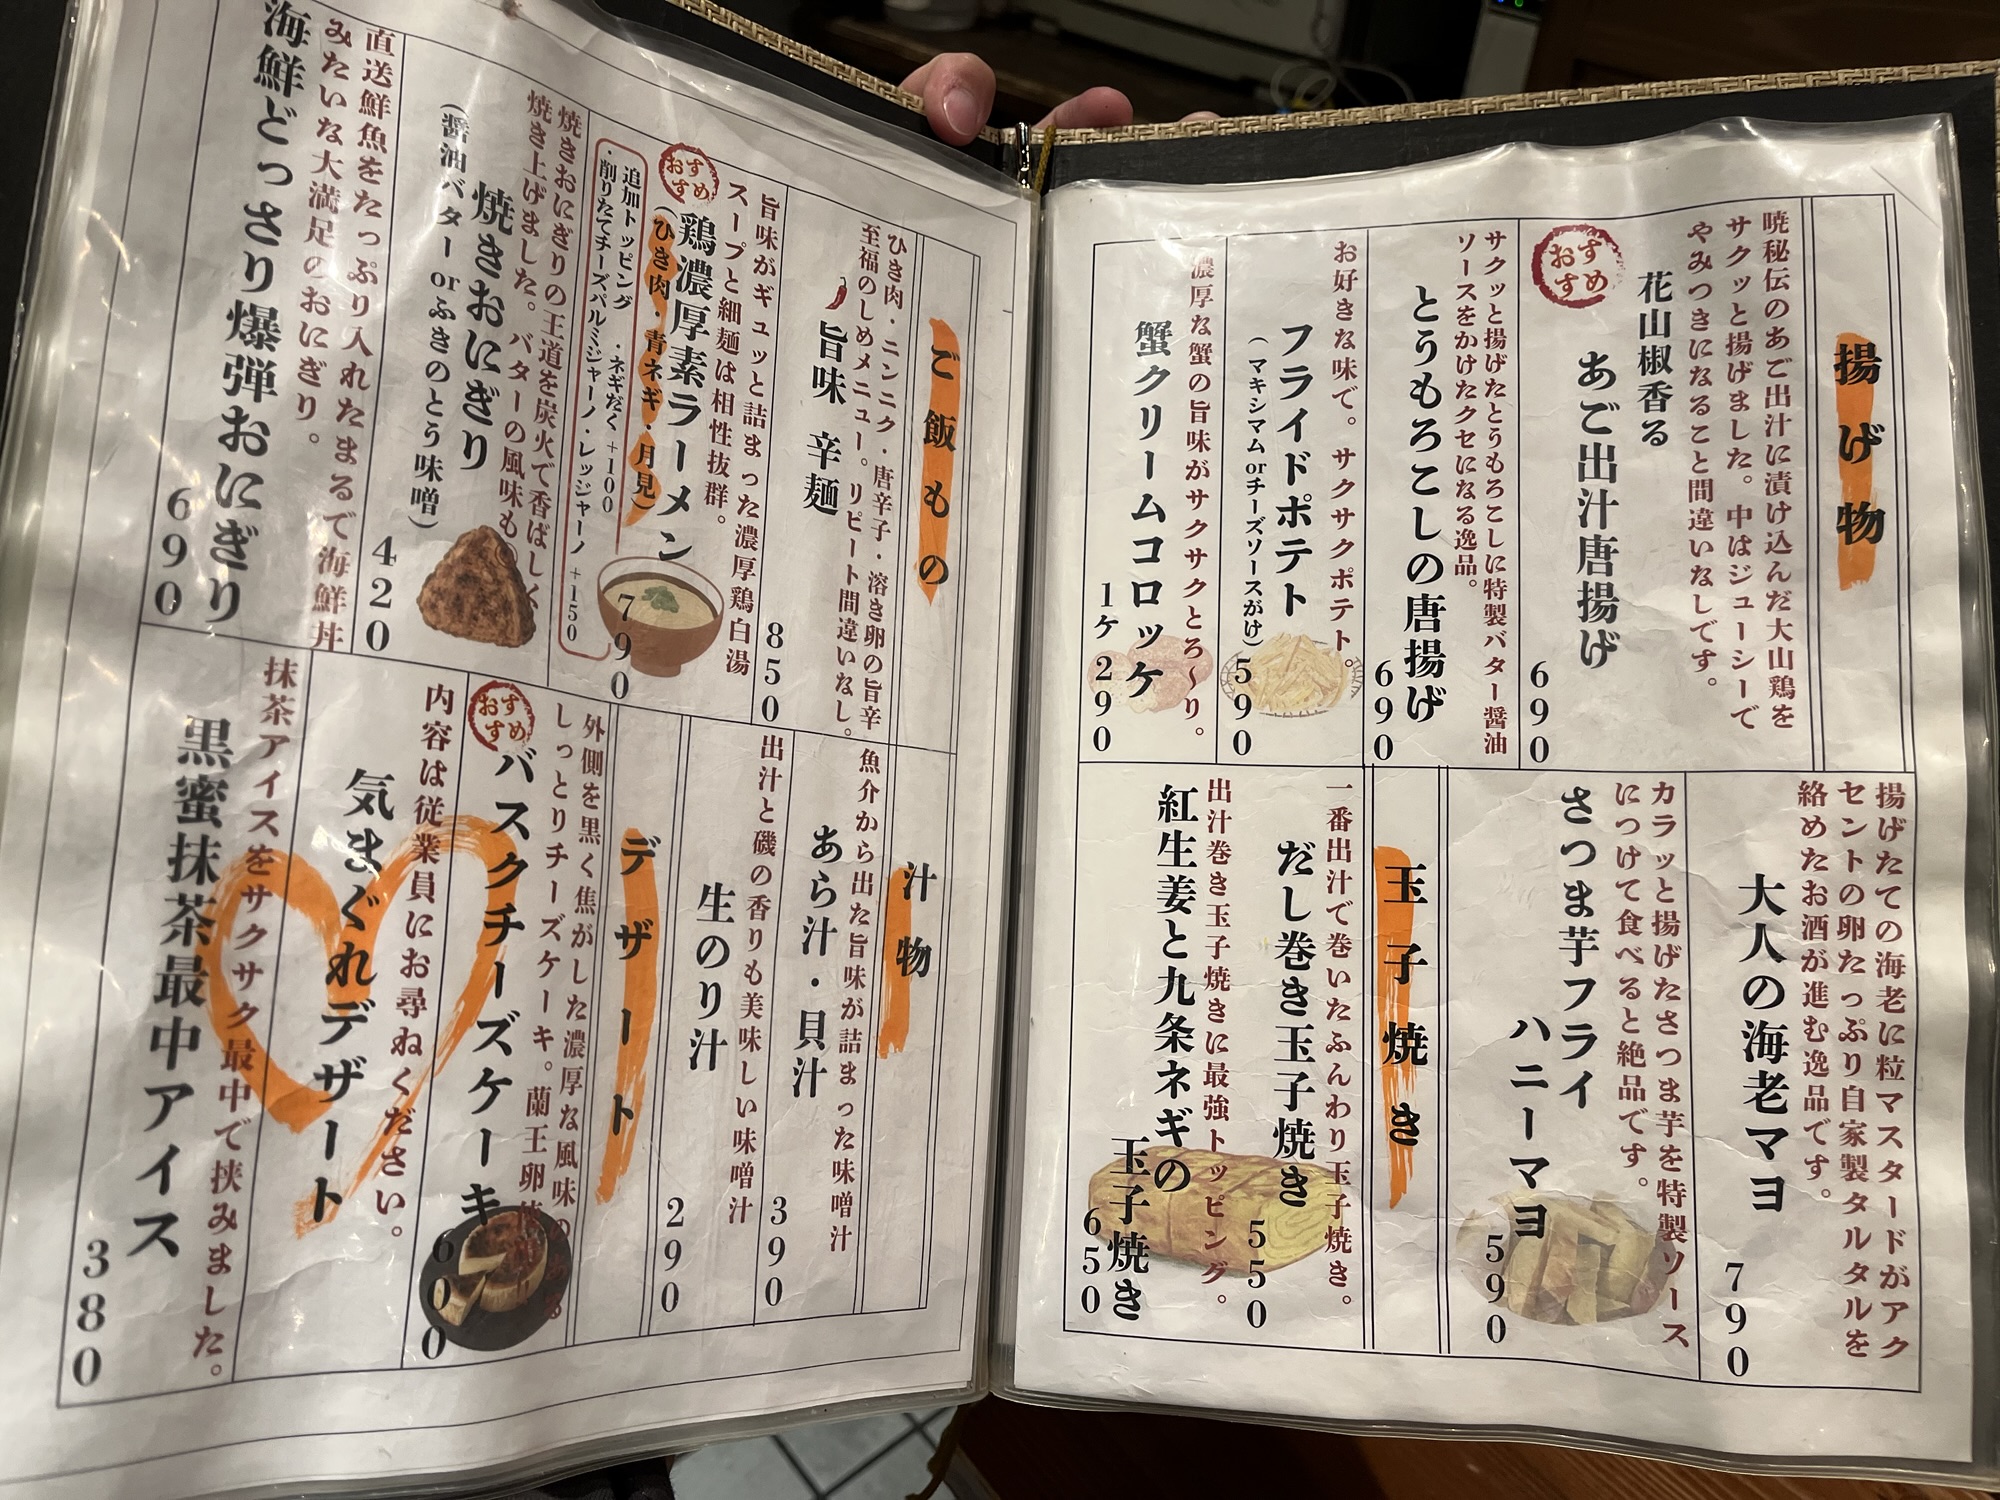 揚げ物
暁秘伝のあご出汁に漬け込んだ大山鶏を
サクッと揚げました。中はジューシーで
やみつきになること間違いなしです。
花山椒香る
おすすめ
あご出汁唐揚げ
690
サクッと揚げたとうもろこしに特製バター醤油
ソースをかけたクセになる逸品。
とうもろこしの唐揚げ
690
お好きな味で。サクサクポテト。
フライドポテト
(マキシマムorチーズソースがけ)
590
濃厚な蟹の旨味がサクサクとろ〜り。
蟹クリームコロッケ
1ケ290
揚げたての海老に粒マスタードがアク
セントの卵たっぷり自家製タルタルを
絡めたお酒が進む逸品です。
大人の海老マヨ
790
カラッと揚げたさつま芋を特製ソース
につけて食べると絶品です。
さつま芋フライ
ハニーマヨ
590
玉子焼き
一番出汁で巻いたふんわり玉子焼き。
だし巻き玉子焼き
550
出汁巻き玉子焼きに最強トッピング。
紅生姜と九条ネギの
玉子焼き
650
ご飯もの
ひき肉・ニンニク・唐辛子・溶き卵の旨辛
至福のしめメニュー。リピート間違いなし。
旨味 辛麺
850
旨味がギュッと詰まった濃厚鶏白湯
スープと細麺は相性抜群。
おすすめ
鶏濃厚素ラーメン
(ひき肉・青ネギ・月見)
790
追加トッピング ・ネギだく +100
・削りたてチーズパルミジャーノ・レッジャーノ +150
焼きおにぎりの王道を炭火で香ばしく
焼き上げました。バターの風味も
焼きおにぎり
(醤油バターorふきのとう味噌)
420
直送鮮魚をたっぷり入れたまるで海鮮丼
みたいな大満足のおにぎり。
海鮮どっさり爆弾おにぎり
690
汁物
魚介から出た旨味が詰まった味噌汁
あら汁・貝汁
390
出汁と磯の香りも美味しい味噌汁
生のり汁
290
デザート
外側を黒く焦がした濃厚な風味の
しっとりチーズケーキ。蘭王卵使
おすすめ
バスクチーズケーキ
600
内容は従業員にお尋ねください。
気まぐれデザート
抹茶アイスをサクサク最中で挟みました。
黒蜜抹茶最中アイス
380